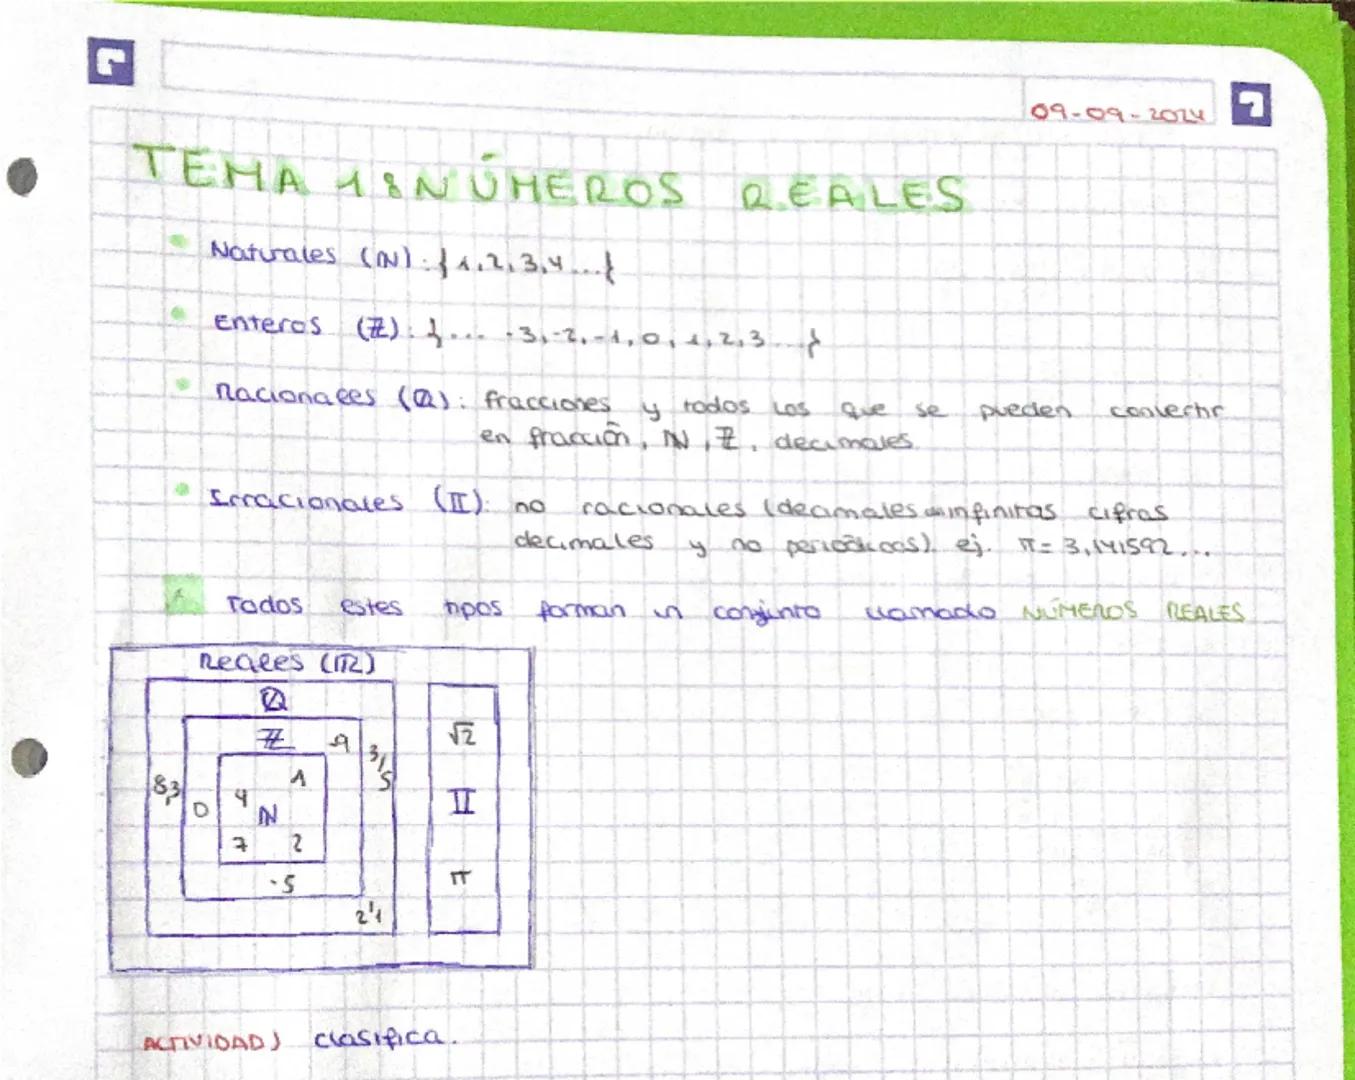 09-09-2024
TEMA 1: NÚMEROS REALES
Naturales (ℕ): {1,2,3,4...}
Enteros (ℤ): {... -3,-2,-1,0,1,2,3...}
Racionales (ℚ): fracciones y todos los que se pueden convertir
en fracción, ℕ, ℤ, decimales.
Irracionales (𝕀): no racionales (decimales infinitas cifras
decimales y no periódicos). ej. π= 3,141592...
Todos estes tipos forman un conjunto llamado NÚMEROS REALES
Reales (ℝ)
ℚ
ℤ -9
√2
3/5
1
8,3
4
0
ℕ
𝕀
7 2
-5
π
2'1
ACTIVIDAD) Clasifica.